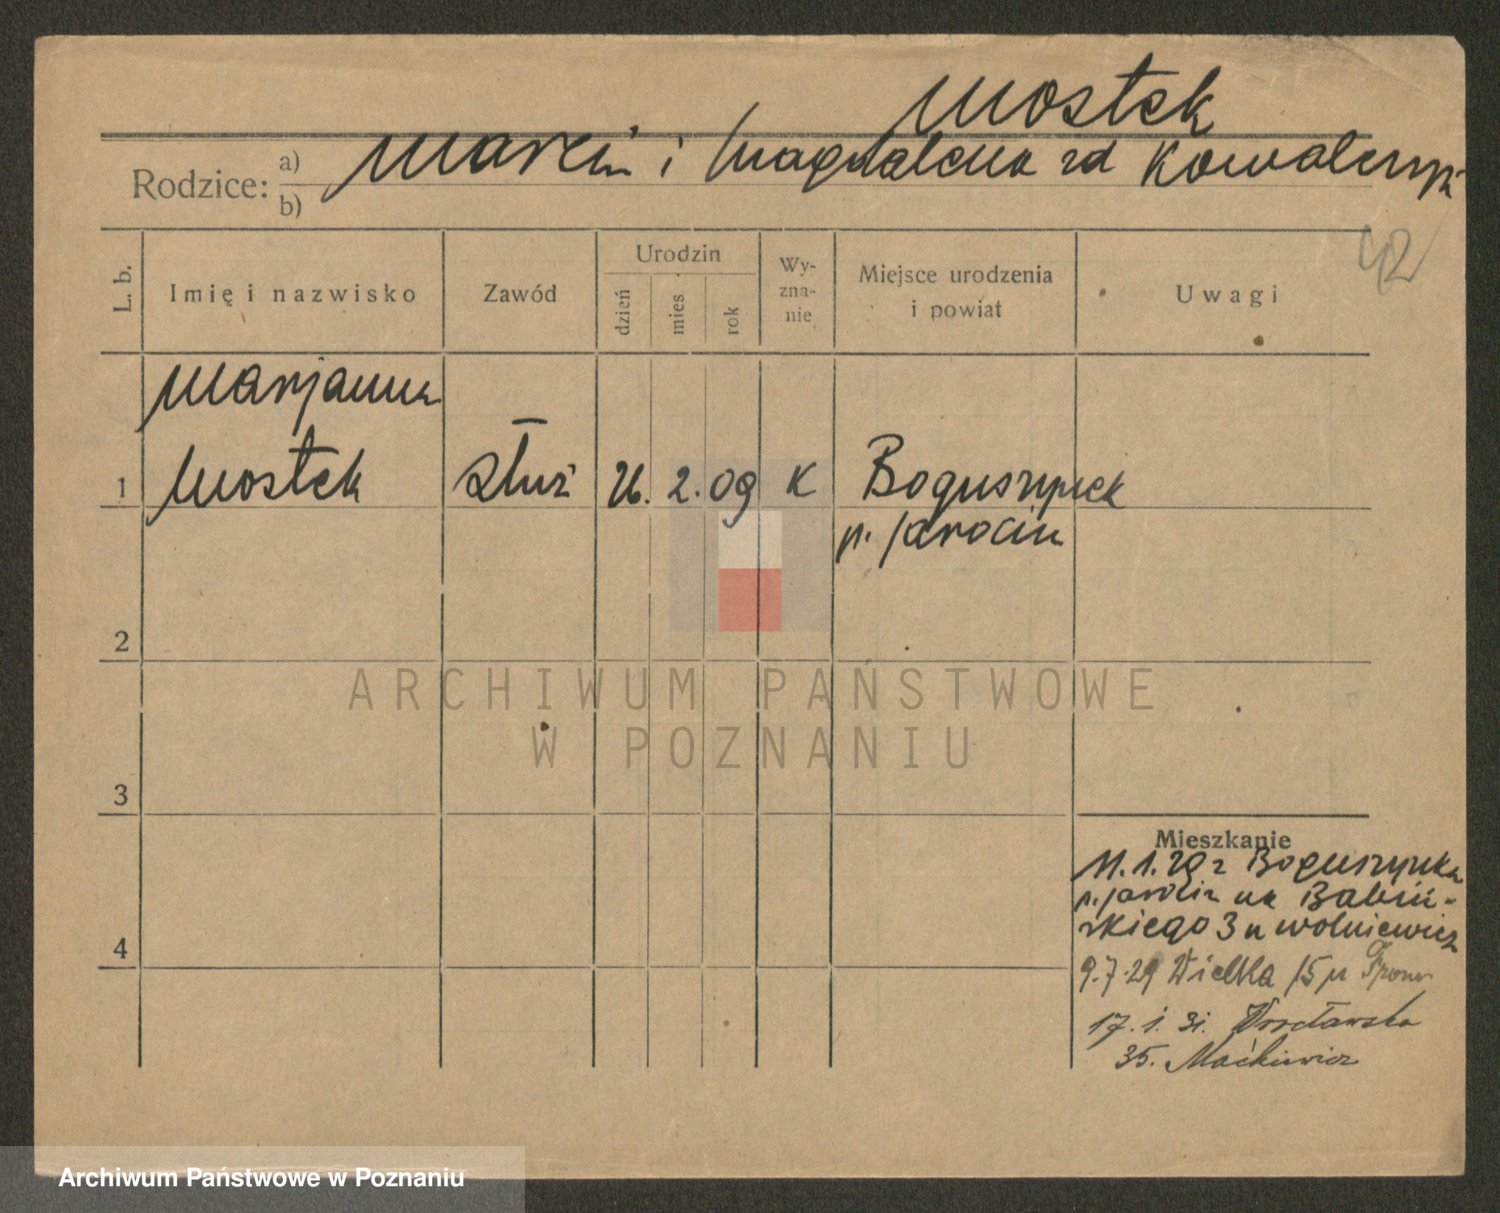 Mostek
Rodzice: a) Marcin i Magdalena zd Kowalczyk
b)
L. b.
Imię i nazwisko
Zawód
Urodzin
dzień
mies
rok
Wy-
zna-
nie
Miejsce urodzenia
i powiat
Uwagi
42
Marjanna
1 Mostek służ 26. 2. 09 K Boguszynek
p. Jarocin
2
3
4
ARCHIWUM PAŃSTWOWE
W POZNANIU
Mieszkanie
11.1.29 z Boguszynka
p. Jarocin na Babiń-
skiego 3 u Wolniewicz
9.7.29 Wielka 15 u
17.1.31. Wrocławska
35. Maćkiewicz
Archiwum Państwowe w Poznaniu